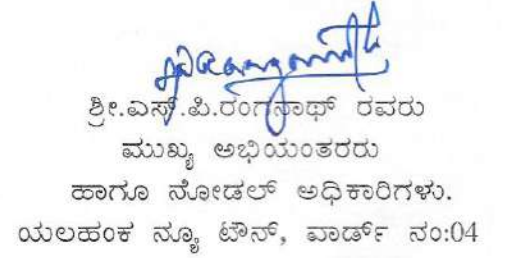 ಶ್ರೀ.ಎಸ್.ಪಿ.ರಂಗನಾಥ್ ರವರು
ಮುಖ್ಯ ಅಭಿಯಂತರರು
ಹಾಗೂ ನೋಡಲ್ ಅಧಿಕಾರಿಗಳು.
ಯಲಹಂಕ ನ್ಯೂ ಟೌನ್, ವಾರ್ಡ್ ನಂ:04